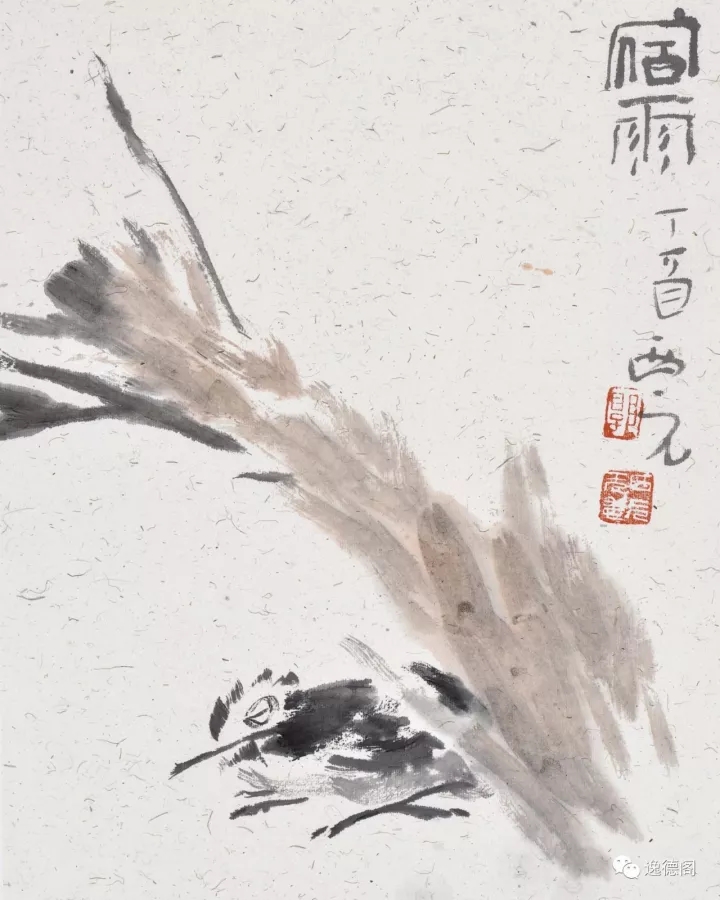 宿雨
丁酉西元
郭
逸德阁